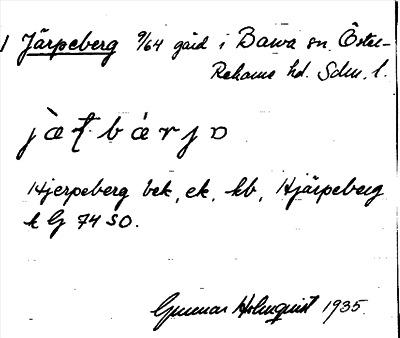 1 Järpeberg 9/64 gård i Bawa sn. Öster-
Rekarne hd. Sdm. l.
Hjerpeberg bek, ek, kb, Hjärpeberg
k G 74 SO.
Gunnar Holmquist 1935.